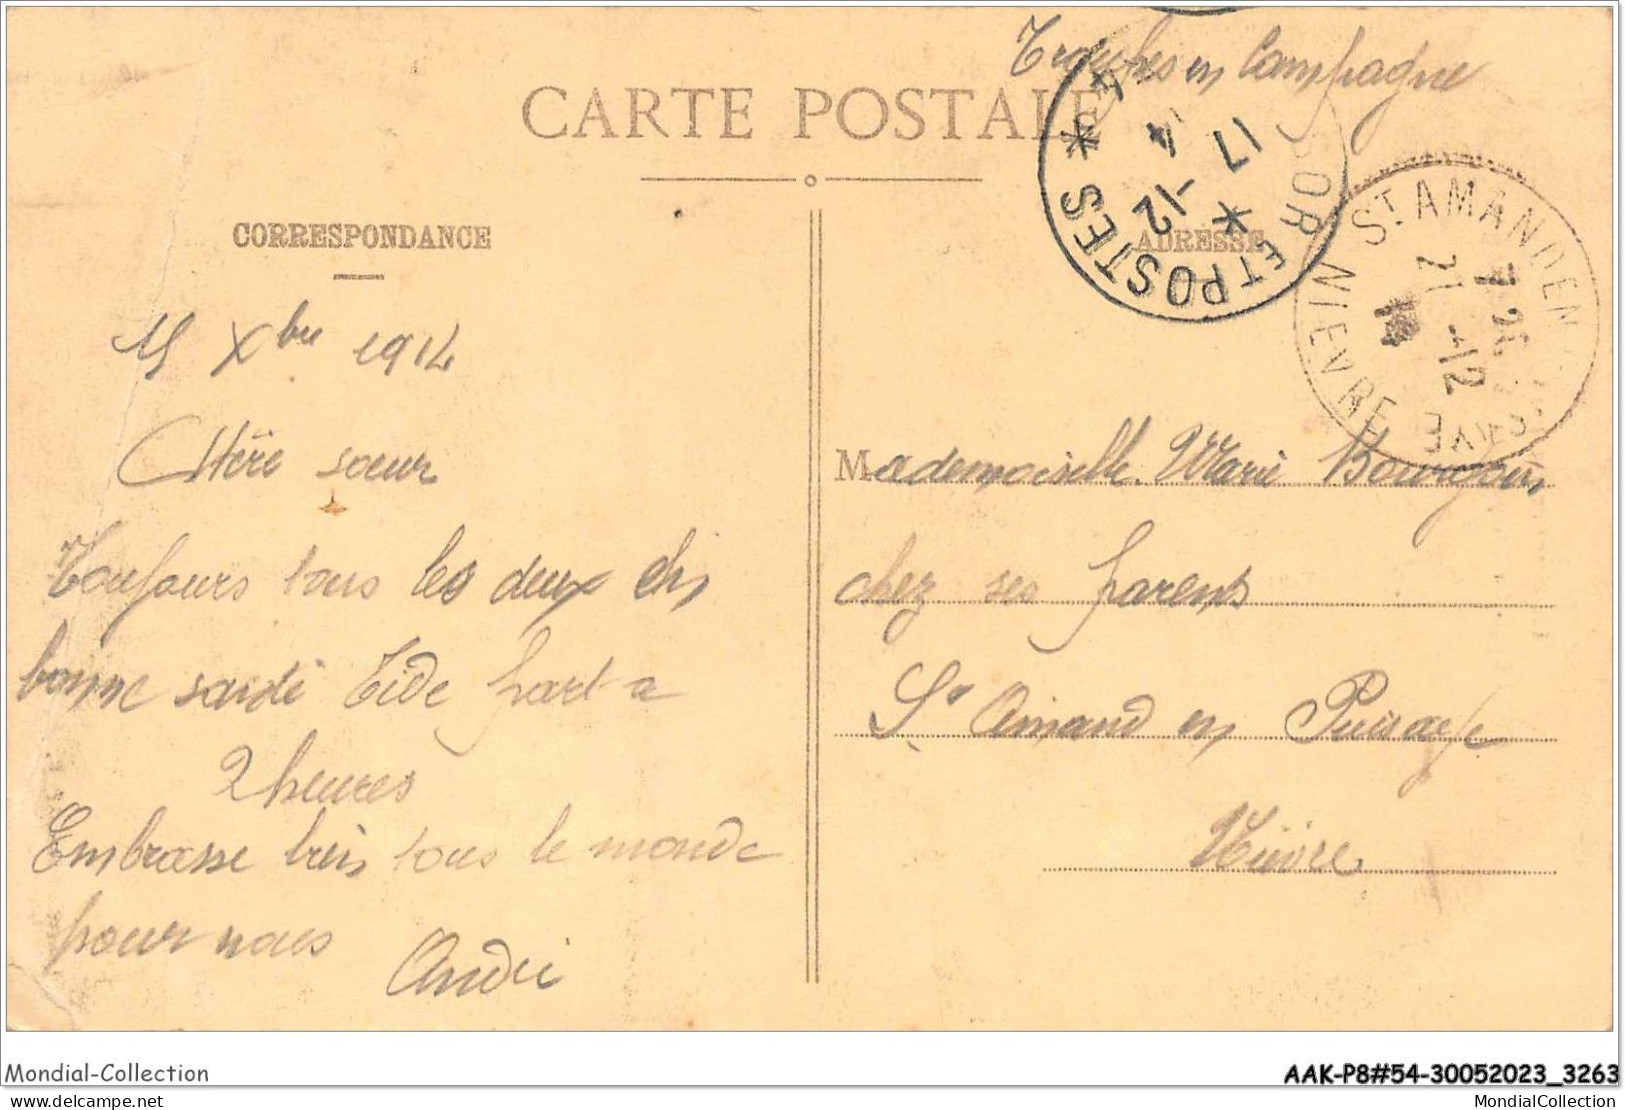 Troupes en Campagne
CARTE POSTALE
CORRESPONDANCE
ADRESSE
TRESOR ET POSTES
17 -12
14
ST AMAND EN PUISAYE
NIEVRE
7
21 -12
14
15 Xbre 1914
Chère sœur
Toujours tous les deux en
bonne santé part a
2 heures
Embrasse bien tous le monde
pour nous
André
Mademoiselle Marie
chez ses parents
St Amand en Puisaye
Nièvre
Mondial-Collection
AAK-P8#54-30052023_3263
delcampe.net
MondialCollection